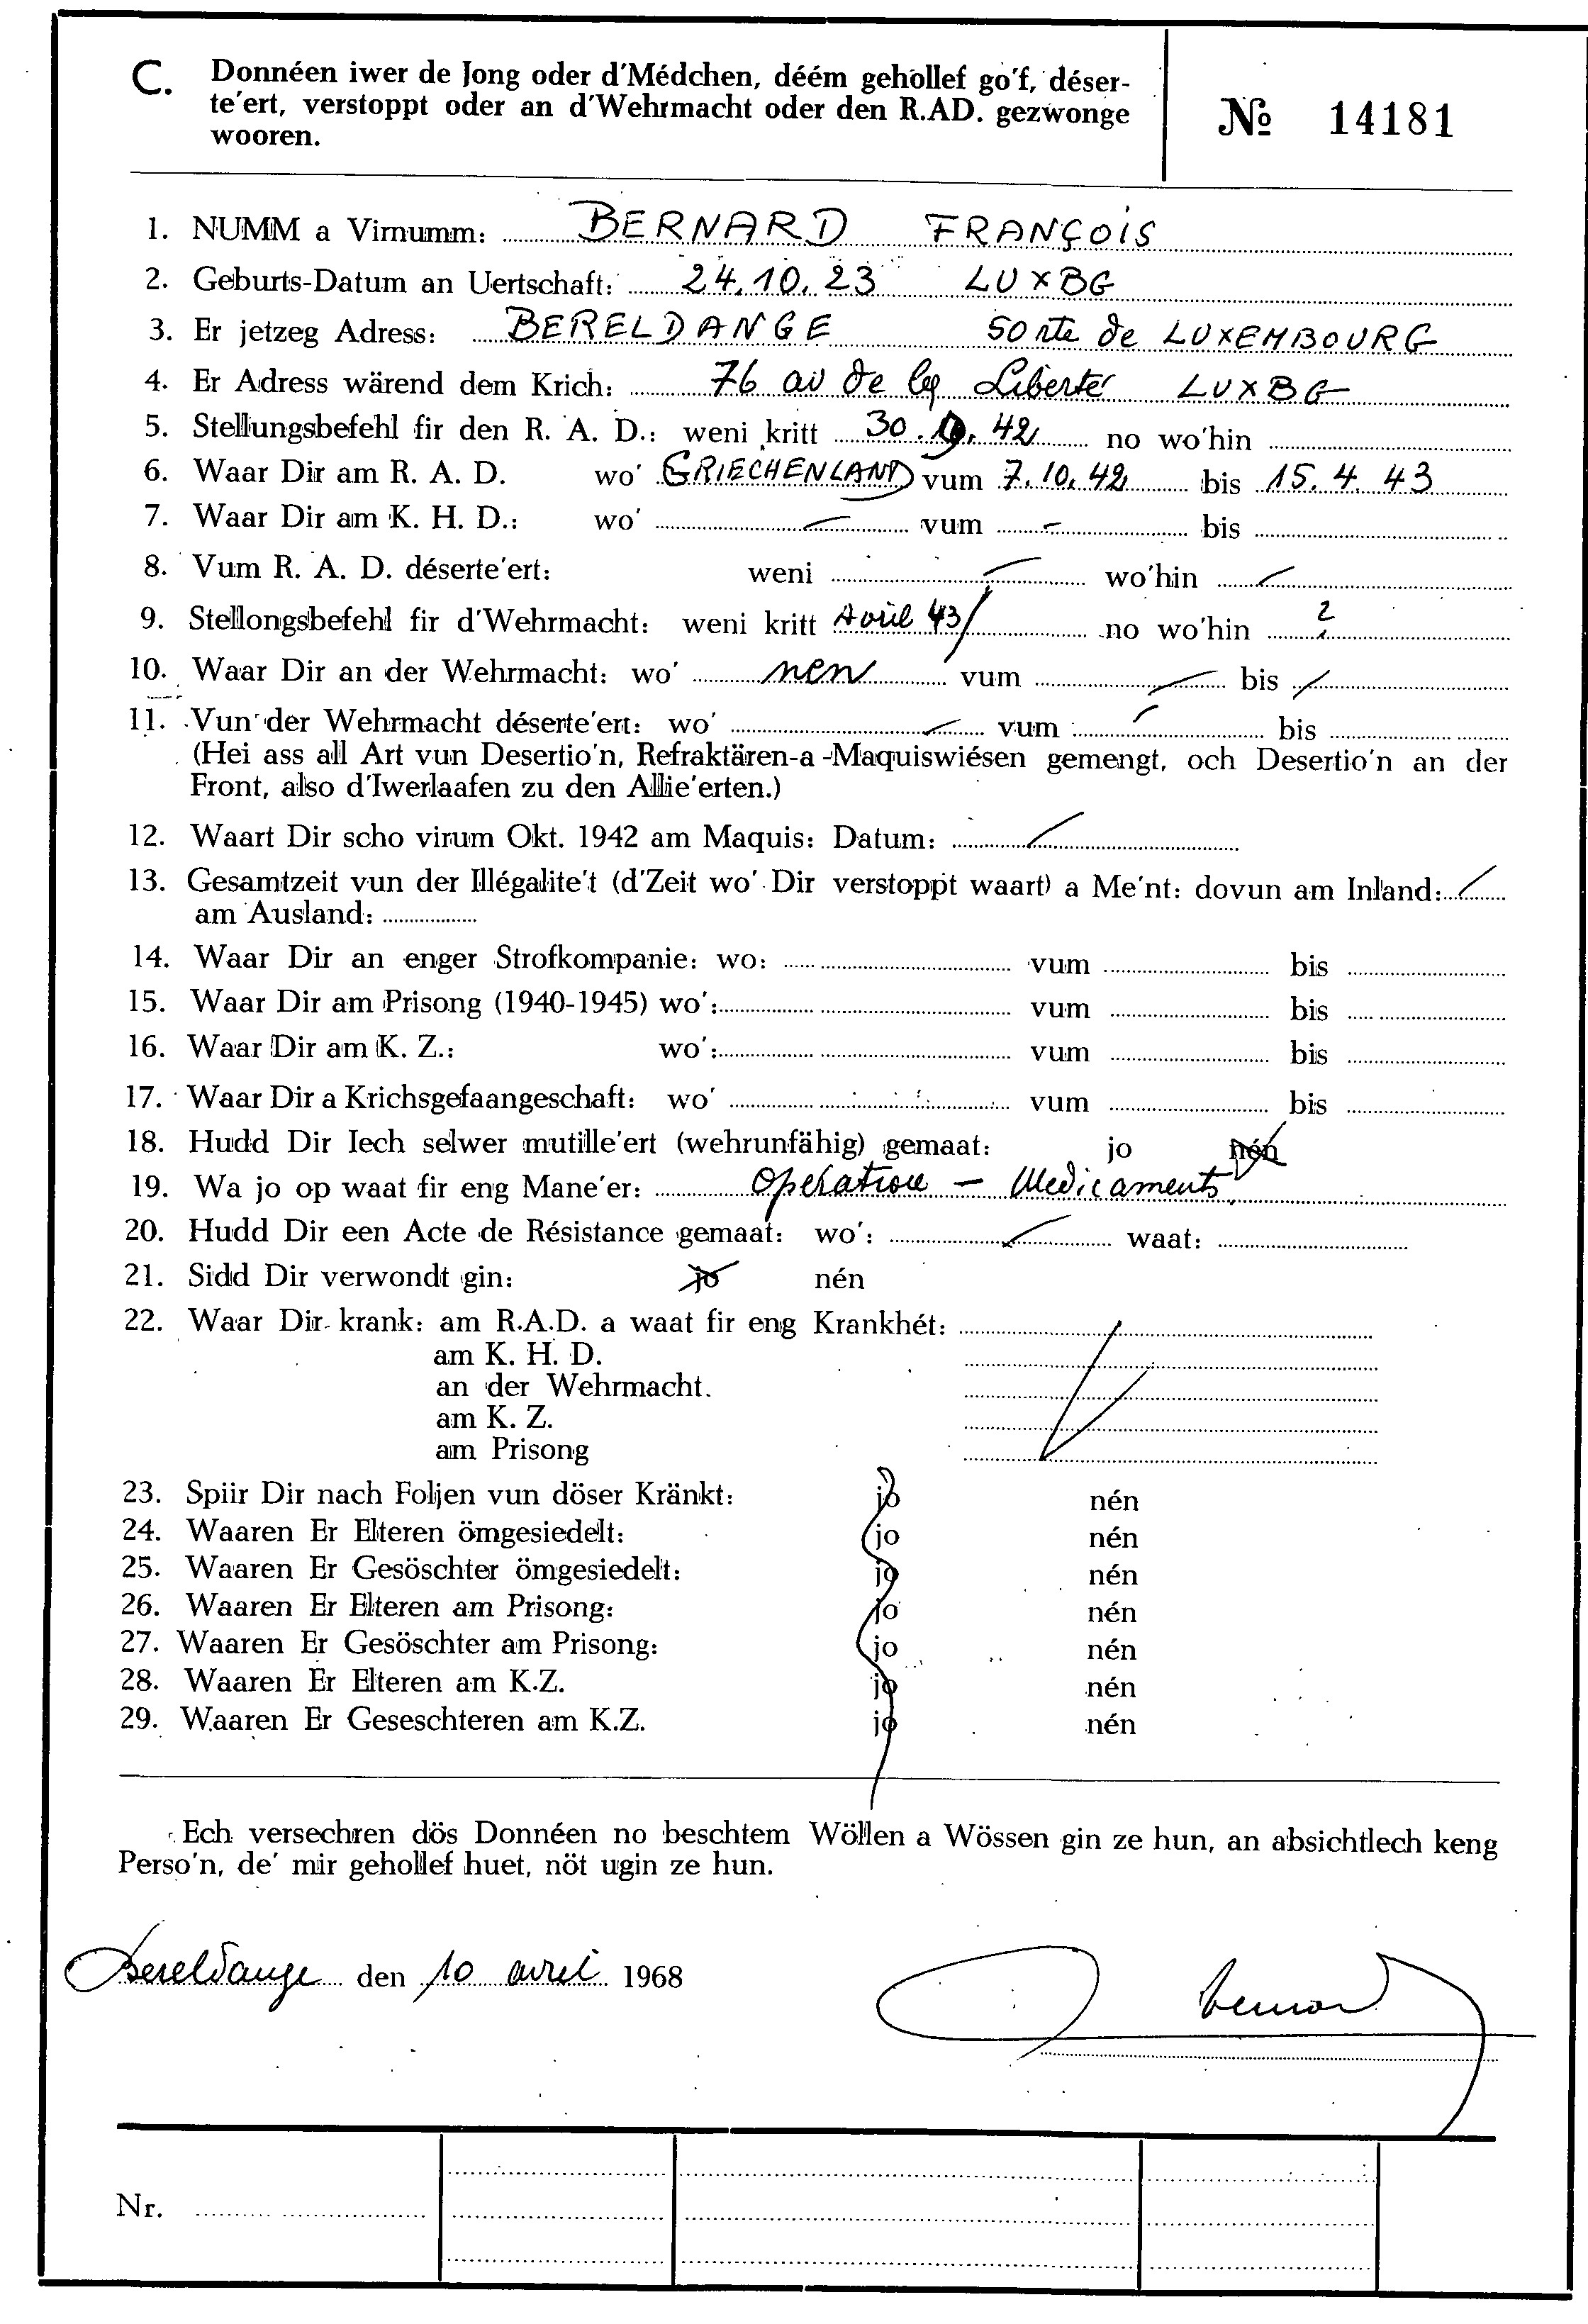 C. Donnéen iwer de Jong oder d'Médchen, déém gehollef go'f, déser-
te'ert, verstoppt oder an d'Wehrmacht oder den R.AD. gezwonge
wooren.
№ 14181
1. NUMM a Virnumm: BERNARD FRANÇOIS
2. Geburts-Datum an Uertschaft: 24.10.23 LUXBG
3. Er jetzeg Adress: BERELDANGE 50 rte de LUXEMBOURG
4. Er Adress wärend dem Krich: 76 av de la Liberté LUXBG
5. Stellungsbefehl fir den R. A. D.: weni kritt 30. 42 no wo'hin
6. Waar Dir am R. A. D. wo' GRIECHENLAND vum 7.10.42 bis 15.4.43
7. Waar Dir am K. H. D.: wo' vum bis
8. Vum R. A. D. déserte'ert: weni wo'hin
9. Stellongsbefehl fir d'Wehrmacht: weni kritt Avril 43 no wo'hin ?
10. Waar Dir an der Wehrmacht: wo' nen vum bis
11. Vun der Wehrmacht déserte'ert: wo' vum bis
(Hei ass all Art vun Desertio'n, Refraktären-a-Maquiswiésen gemengt, och Desertio'n an der
Front, also d'Iwerlaafen zu den Allie'erten.)
12. Waart Dir scho virum Okt. 1942 am Maquis: Datum:
13. Gesamtzeit vun der Illégalite't (d'Zeit wo' Dir verstoppt waart) a Me'nt: dovun am Inland:
am Ausland:
14. Waar Dir an enger Strofkompanie: wo: vum bis
15. Waar Dir am Prisong (1940-1945) wo': vum bis
16. Waar Dir am K. Z.: wo': vum bis
17. Waar Dir a Krichsgefaangeschaft: wo' vum bis
18. Hudd Dir Iech selwer mutille'ert (wehrunfähig) gemaat: jo nén
19. Wa jo op waat fir eng Mane'er: Operation - Medicaments
20. Hudd Dir een Acte de Résistance gemaat: wo': waat:
21. Sidd Dir verwondt gin: jo nén
22. Waar Dir krank: am R.A.D. a waat fir eng Krankhét:
am K. H. D.
an der Wehrmacht.
am K. Z.
am Prisong
23. Spiir Dir nach Foljen vun döser Kränkt: jo nén
24. Waaren Er Elteren ömgesiedelt: jo nén
25. Waaren Er Gesöschter ömgesiedelt: jo nén
26. Waaren Er Elteren am Prisong: jo nén
27. Waaren Er Gesöschter am Prisong: jo nén
28. Waaren Er Elteren am K.Z. jo nén
29. Waaren Er Geseschteren am K.Z. jo nén
Ech versechren dös Donnéen no beschtem Wöllen a Wössen gin ze hun, an absichtlech keng
Perso'n, de' mir gehollef huet, nöt ugin ze hun.
Bereldange den 10 avril 1968
Bernard
Nr.